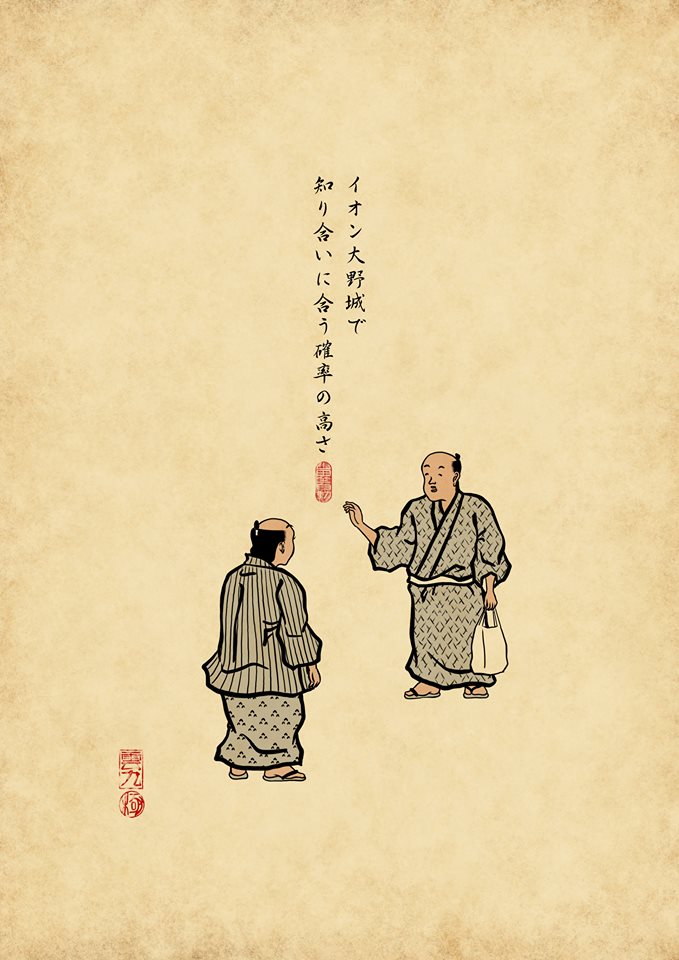 イオン大野城で
知り合いに合う確率の高さ